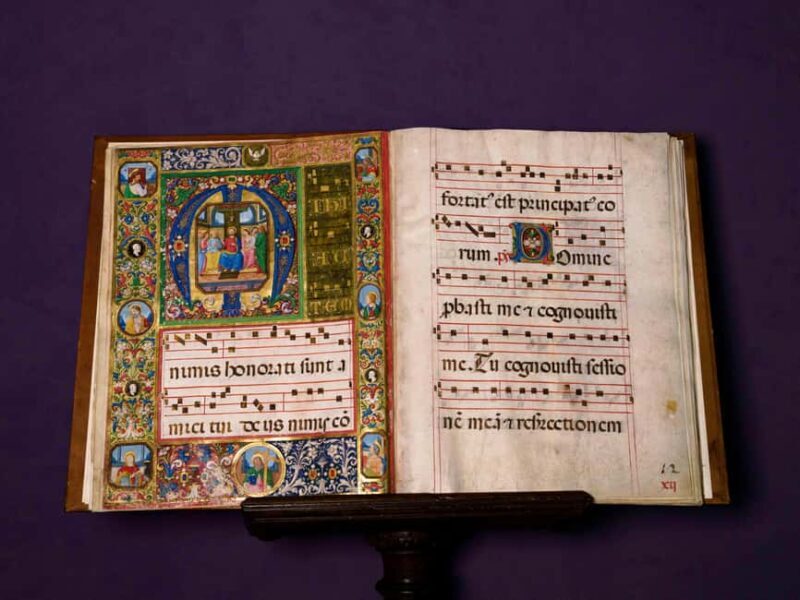 nimis honorati sunt a
mici tui de us nimis cō
fortatꝰ est principatꝰ eo
rum. ps Domine
ꝓbasti me ⁊ cognouisti
me. Tu cognouisti sessio
nē meā ⁊ resurrectionem
12
xij